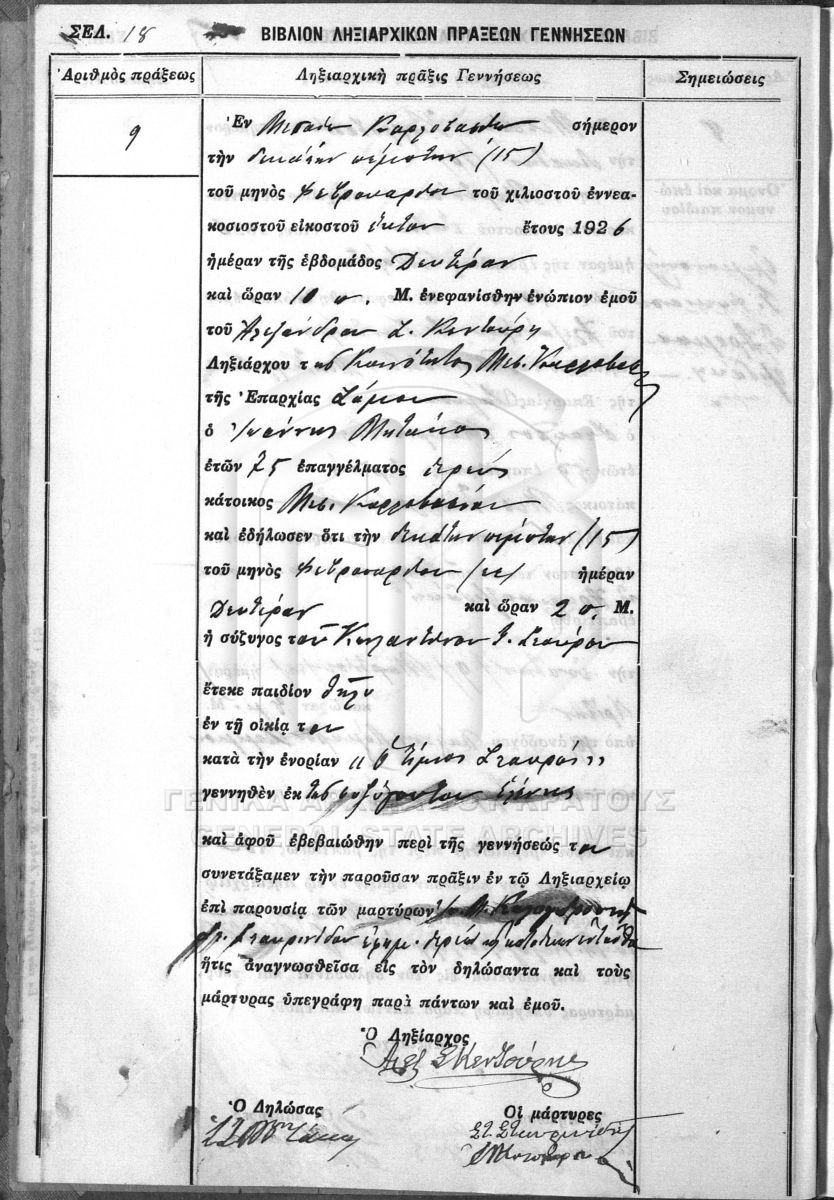 ΣΕΛ. 18 ΒΙΒΛΙΟΝ ΛΗΞΙΑΡΧΙΚΩΝ ΠΡΑΞΕΩΝ ΓΕΝΝΗΣΕΩΝ
Ἀριθμὸς πράξεως Ληξιαρχικὴ πρᾶξις Γεννήσεως Σημειώσεις
9
Ἐν Μεσαίῳ Καρλοβασίῳ σήμερον
τὴν δεκάτην πέμπτην (15)
τοῦ μηνὸς Φεβρουαρίου τοῦ χιλιοστοῦ ἐννεα-
κοσιοστοῦ εἰκοστοῦ ἕκτου ἔτους 1926
ἡμέραν τῆς ἑβδομάδος Δευτέραν
καὶ ὥραν 10 π. Μ. ἐνεφανίσθην ἐνώπιον ἐμοῦ
τοῦ Ἀλεξάνδρου Σ. Κεντούρη
Ληξιάρχου τῆς Κοινότητος Μεσ. Καρλοβασ
τῆς Ἐπαρχίας Σάμου
ὁ Ἰωάννης Μητάκας
ἐτῶν 75 ἐπαγγέλματος ἱερεὺς
κάτοικος Μεσ. Καρλοβασίου
καὶ ἐδήλωσεν ὅτι τὴν δεκάτην πέμπτην (15)
τοῦ μηνὸς Φεβρουαρίου ἡμέραν
Δευτέραν καὶ ὥραν 2 π. Μ.
ἡ σύζυγος τοῦ Κωνσταντίνου Σταύρου
ἔτεκε παιδίον θῆλυ
ἐν τῇ οἰκίᾳ του
κατὰ τὴν ἐνορίαν "ὁ Τίμιος Σταυρὸς"
γεννηθὲν ἐκ τῆς συζύγου του Ἑλένης
ΓΕΝΙΚΑ ΑΡΧΕΙΑ ΤΟΥ ΚΡΑΤΟΥΣ
GENERAL STATE ARCHIVES
καὶ ἀφοῦ ἐβεβαιώθην περὶ τῆς γεννήσεώς του
συνετάξαμεν τὴν παροῦσαν πρᾶξιν ἐν τῷ Ληξιαρχείῳ
ἐπὶ παρουσίᾳ τῶν μαρτύρων
Στ. Σταυρινίδου ἐφημ. ἱερέως κατοίκων ἐνταῦθα
ἥτις ἀναγνωσθεῖσα εἰς τὸν δηλώσαντα καὶ τοὺς
μάρτυρας ὑπεγράφη παρὰ πάντων καὶ ἐμοῦ.
Ὁ Ληξίαρχος
Ἀλεξ Σ Κεντούρης
Ὁ Δηλώσας Οἱ μάρτυρες
Στ. Σταυρινίδης